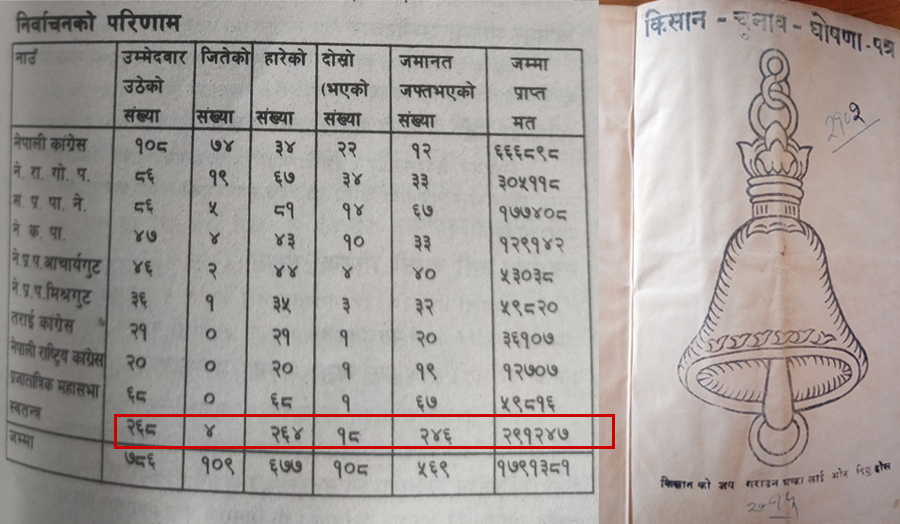 निर्वाचनको परिणाम
नाउँ उम्मेदवार उठेको संख्या जितेको संख्या हारेको संख्या दोस्रो (भएको संख्या जमानत जफ्तभएको संख्या जम्मा प्राप्त मत
नेपाली कांग्रेस १०८ ७४ ३४ २२ १२ ६६६८९८
ने. रा. गो. प. ८६ १९ ६७ ३४ ३३ ३०५११८
सं. प्र. पा. ने. ८६ ५ ८१ १४ ६७ १७७४०८
ने क. पा. ४७ ४ ४३ १० ३३ १२९१४२
ने.प्र.प.आचार्यगुट ४६ २ ४४ ४ ४० ५३०३८
ने.प्र.प.मिश्रगुट ३६ १ ३५ ३ ३२ ५९८२०
तराई कांग्रेस २१ ० २१ १ २० ३६१०७
नेपाली राष्ट्रिय कांग्रेस २० ० २० १ १९ १२७०७
प्रजातांत्रिक महासभा ६८ ० ६८ १ ६७ ५९८९६
स्वतन्त्र २६८ ४ २६४ १८ २४६ २९१२४७
जम्मा ७८६ १०९ ६७७ १०८ ५६९ १७९१३८१
किसान - चुनाव - घोषणा - पत्र
किसान को जय गराउन घण्टा लाई भोट दिनु होस